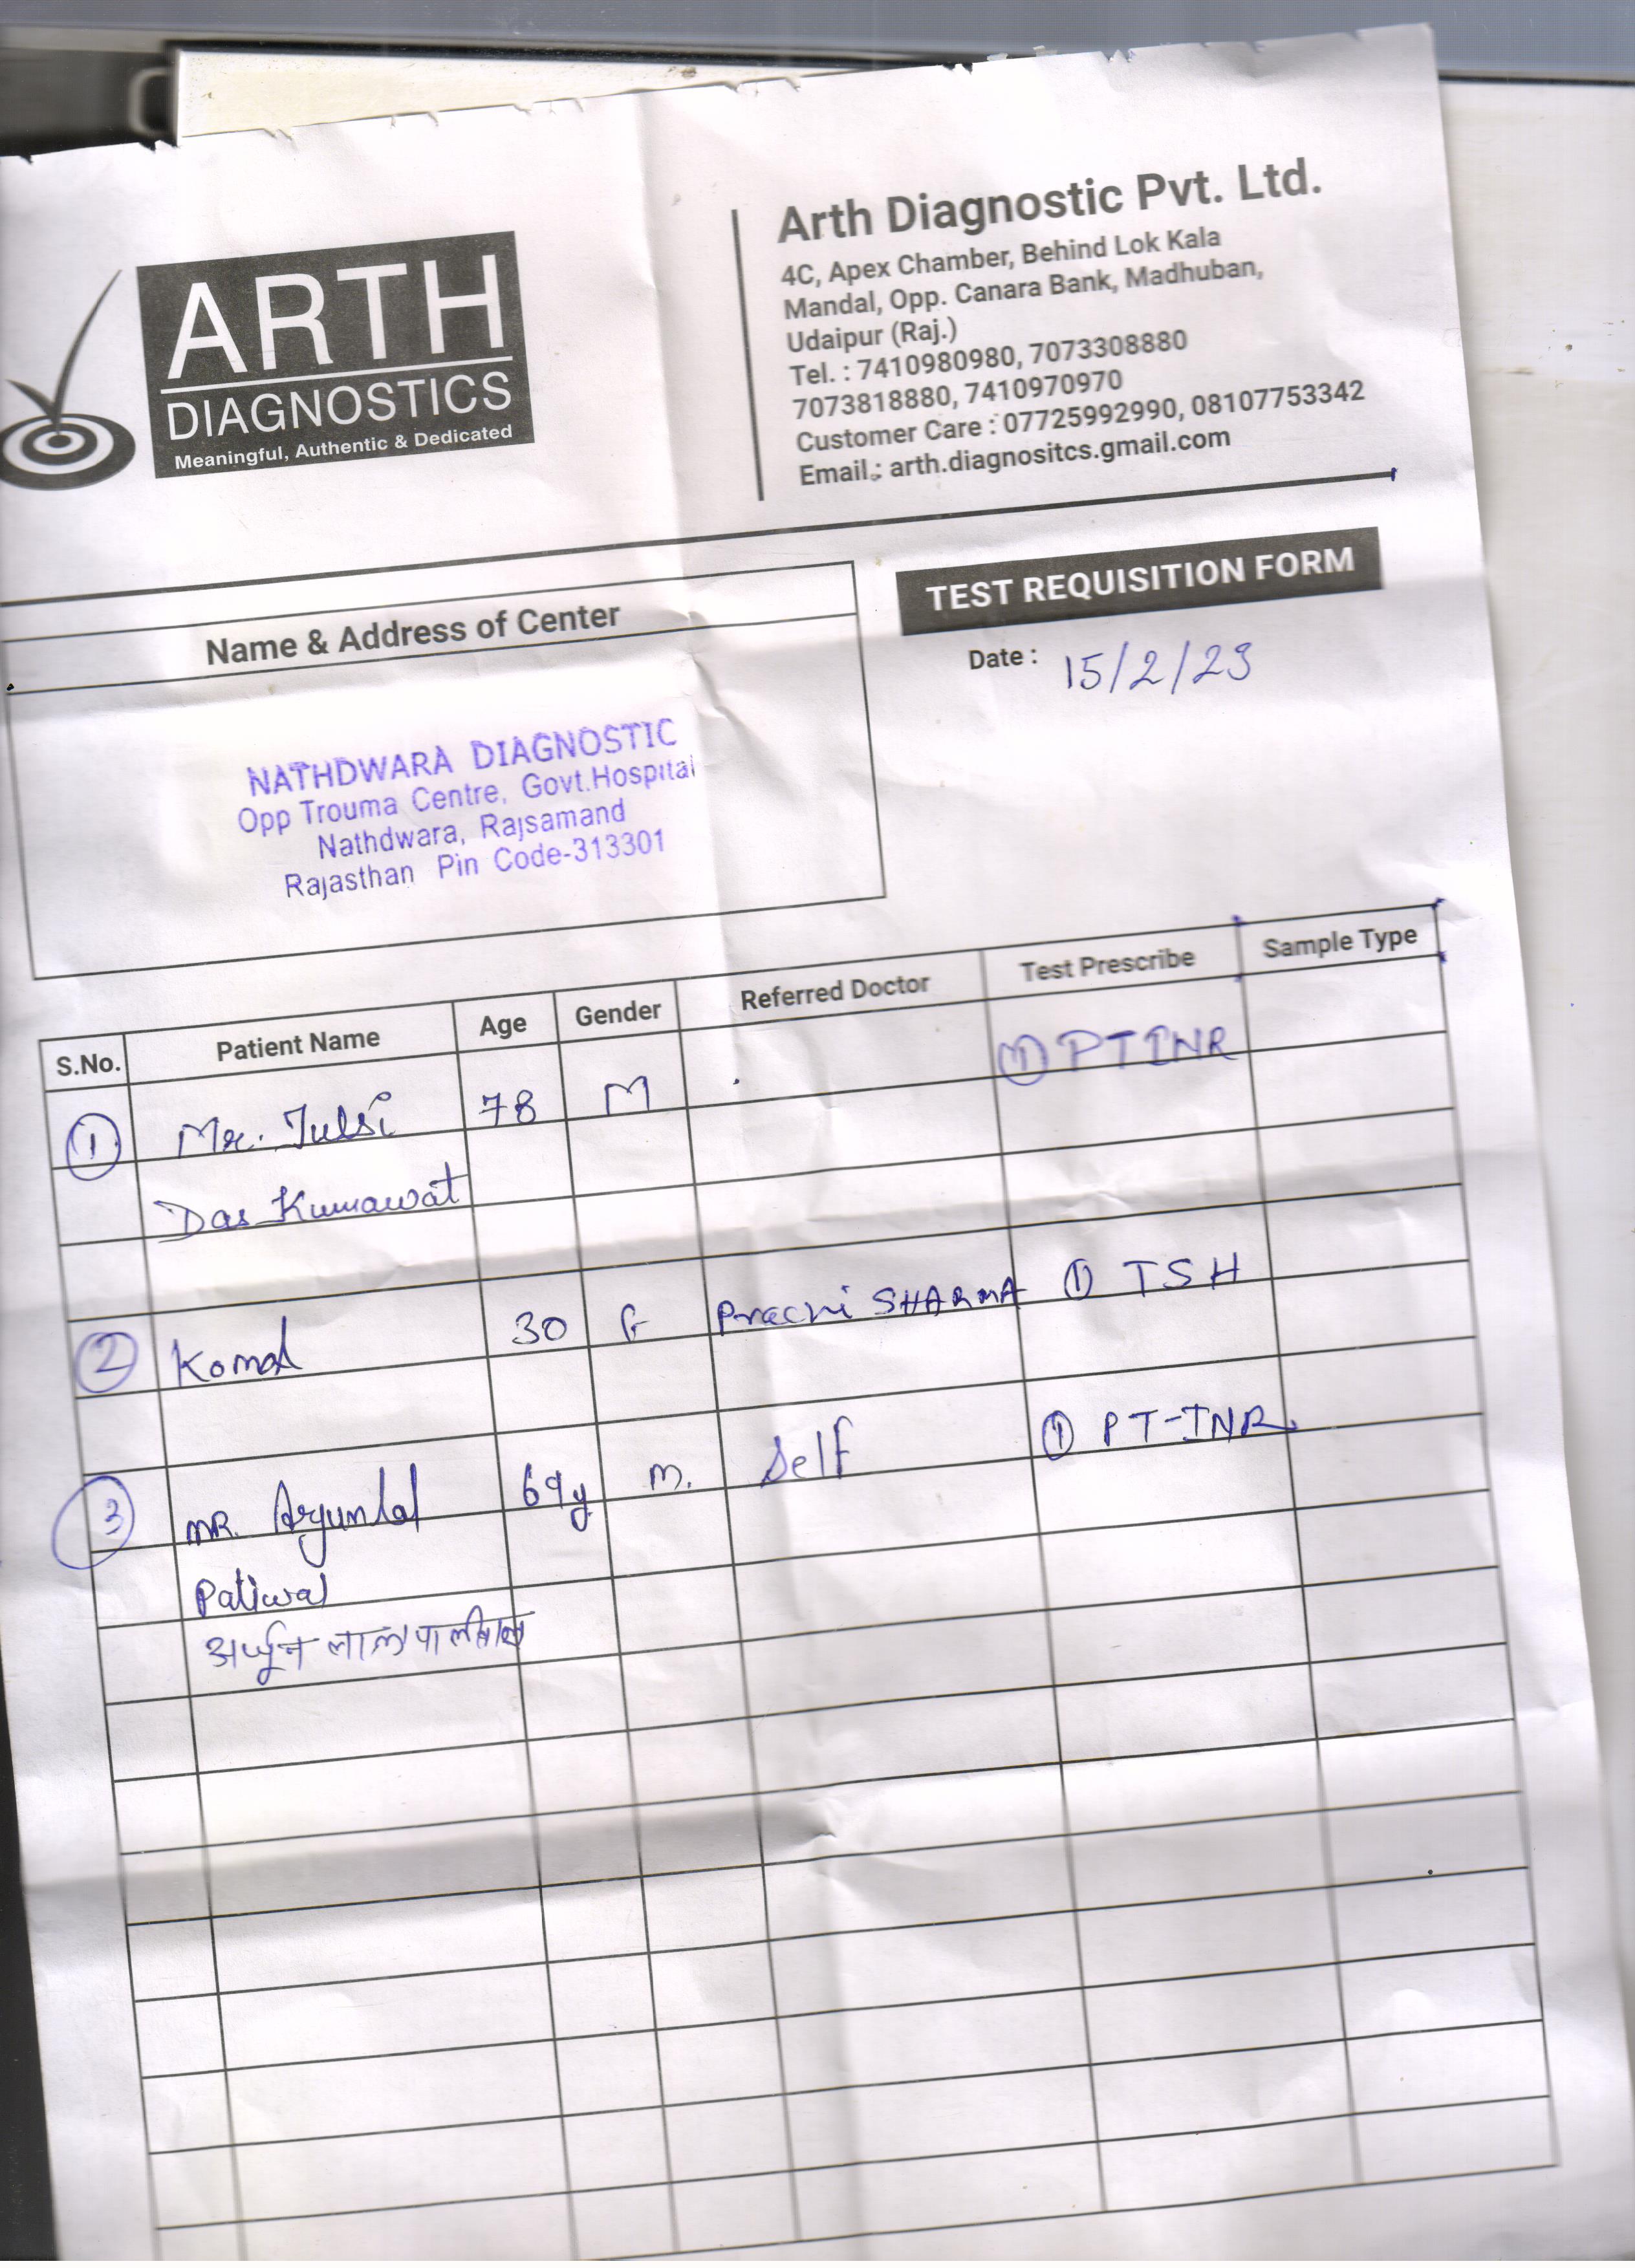 ARTH
DIAGNOSTICS
Meaningful, Authentic & Dedicated
Arth Diagnostic Pvt. Ltd.
4C, Apex Chamber, Behind Lok Kala
Mandal, Opp. Canara Bank, Madhuban,
Udaipur (Raj.)
Tel. : 7410980980, 7073308880
7073818880, 7410970970
Customer Care : 07725992990, 08107753342
Email.: arth.diagnositcs.gmail.com
TEST REQUISITION FORM
Name & Address of Center
Date : 15/2/23
NATHDWARA DIAGNOSTIC
Opp Trouma Centre, Govt.Hospital
Nathdwara, Rajsamand
Rajasthan Pin Code-313301
S.No. Patient Name Age Gender Referred Doctor Test Prescribe Sample Type
1 Mr. Tulsi 78 M 1 PTINR
Das Kumawat
2 Komal 30 F Prachi SHARMA 1 TSH
3 MR. Arjunlal 69y M. Self 1 PT-INR
Paliwal
अर्जुन लाल पालीवाल